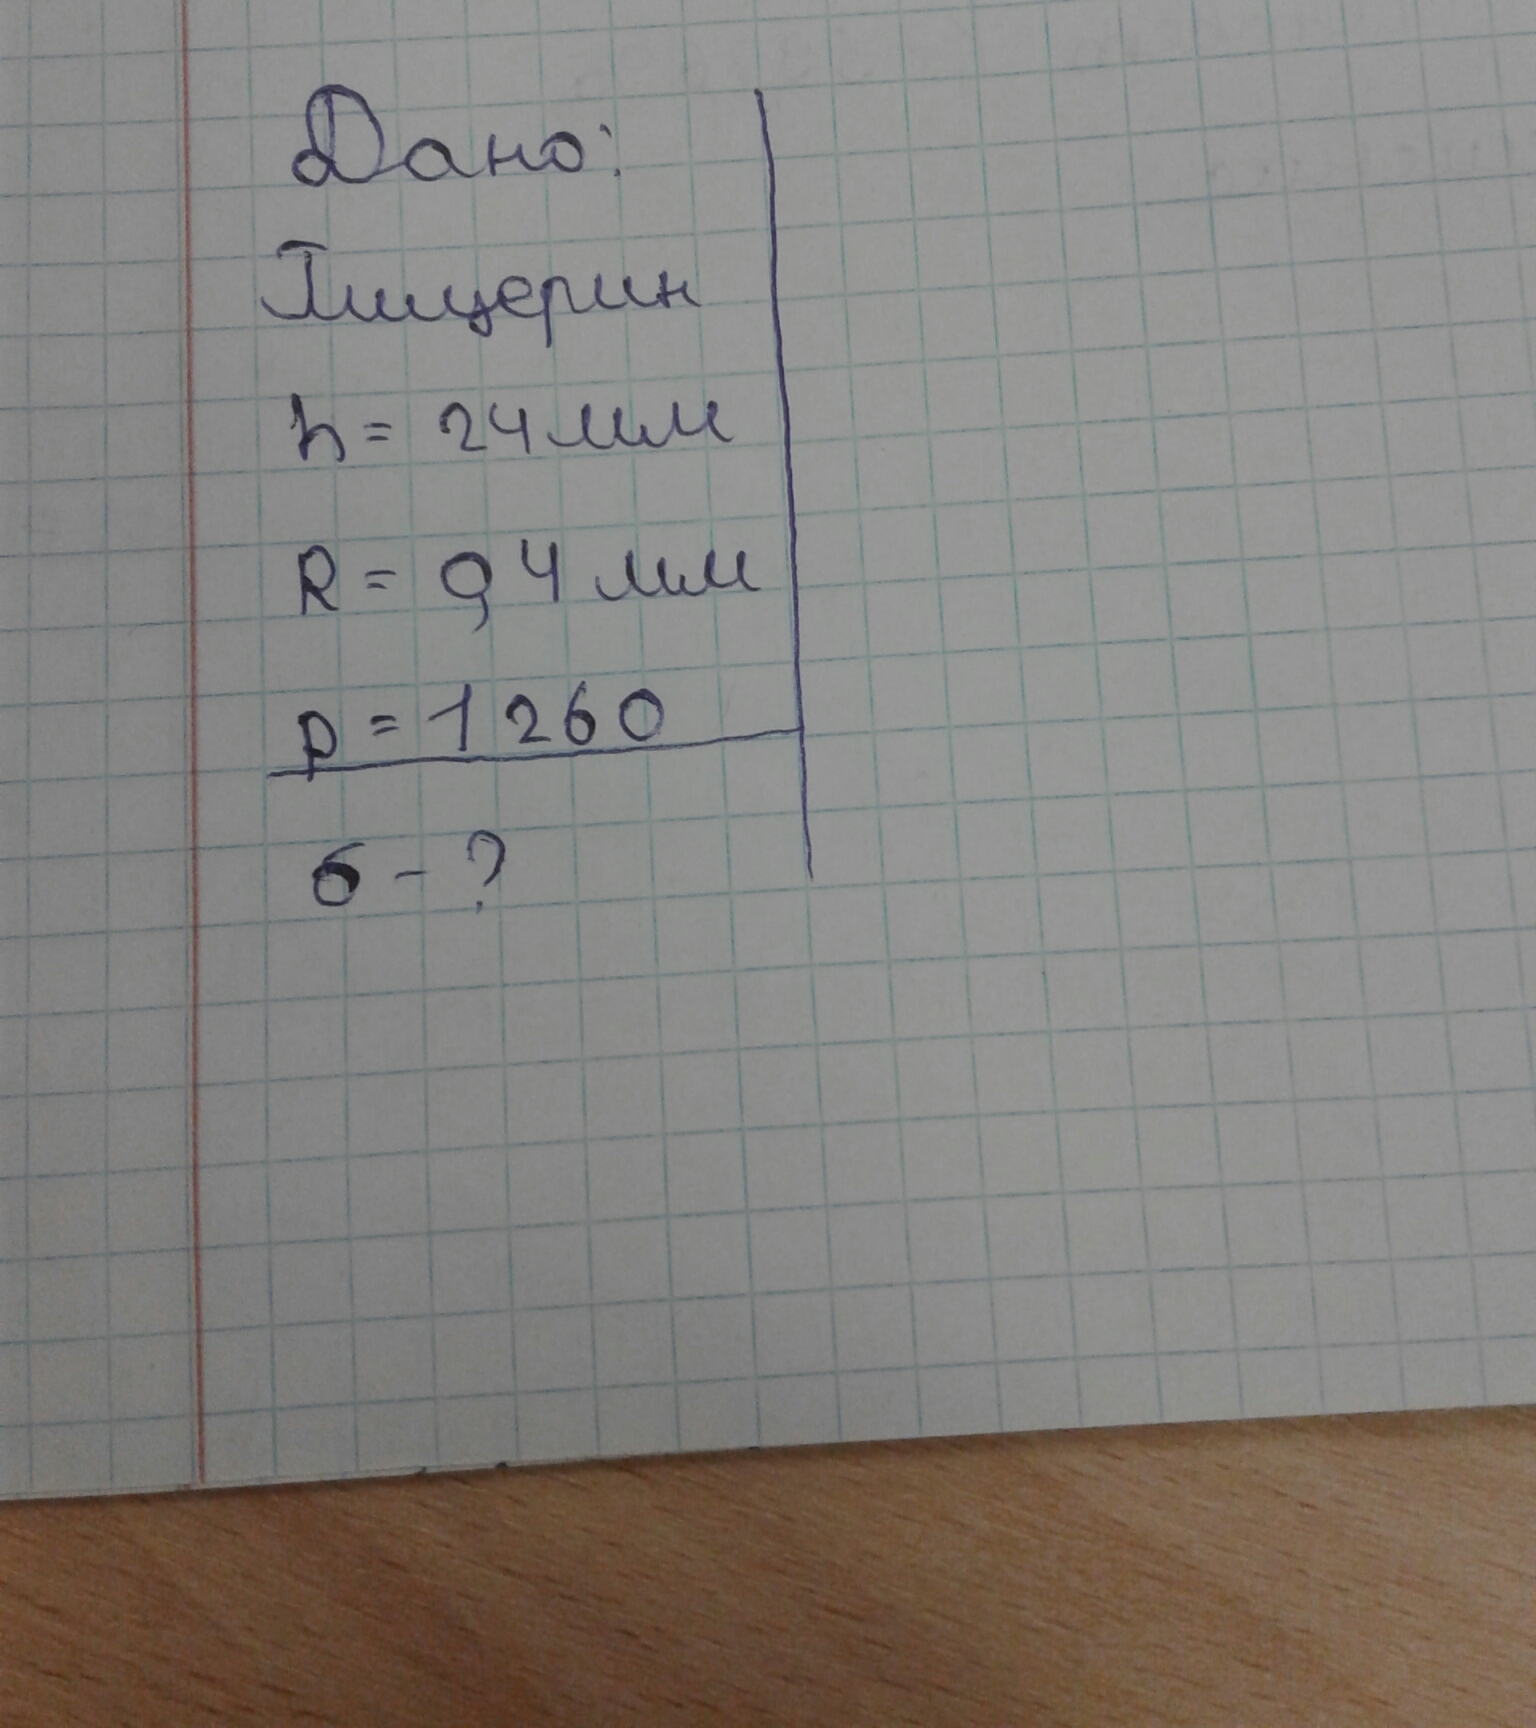 Дано:
Глицерин
h = 24 мм
R = 0,4 мм
p = 1260
б - ?